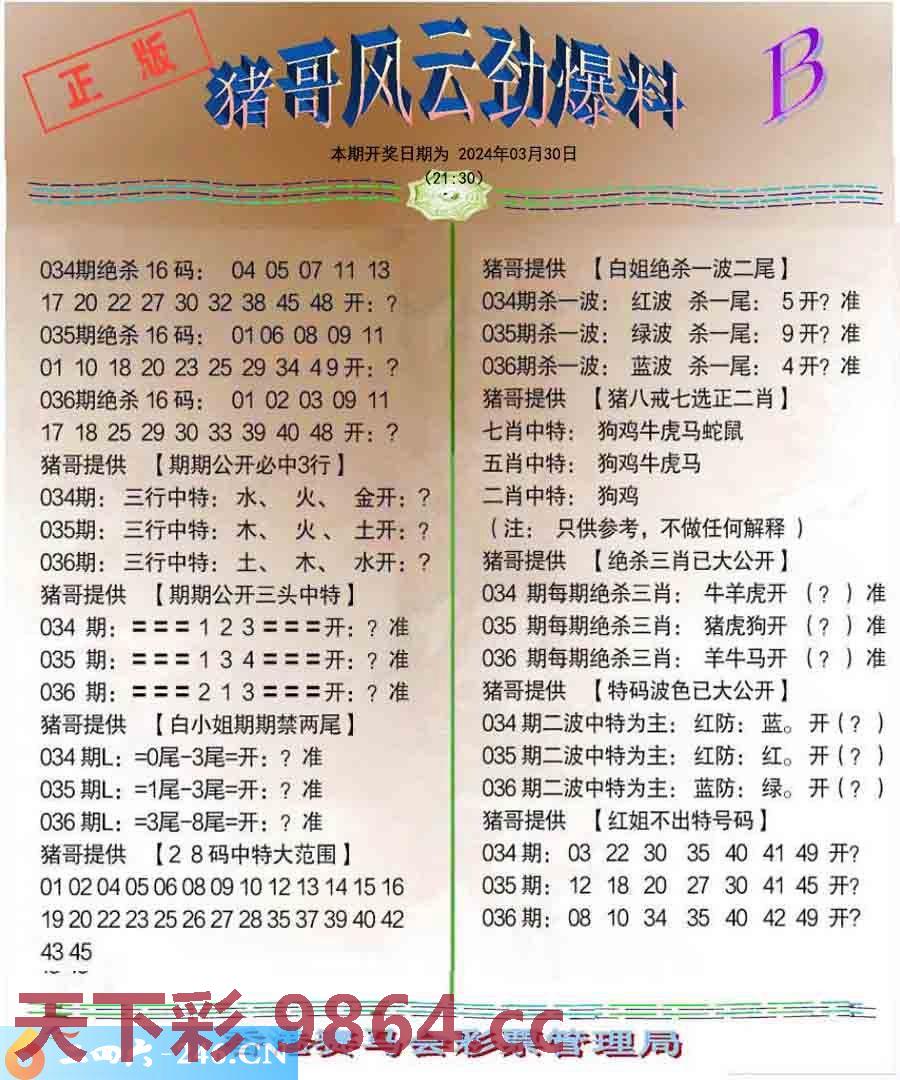 正版
猪哥风云劲爆料
B
本期开奖日期为 2024年03月30日
(21:30)
034期绝杀16码: 04 05 07 11 13
17 20 22 27 30 32 38 45 48 开:?
035期绝杀16码: 01 06 08 09 11
01 10 18 20 23 25 29 34 49开:?
036期绝杀16码: 01 02 03 09 11
17 18 25 29 30 33 39 40 48 开:?
猪哥提供 【期期公开必中3行】
034期: 三行中特:水、 火、 金开:?
035期: 三行中特:木、 火、 土开:?
036期: 三行中特:土、 木、 水开:?
猪哥提供 【期期公开三头中特】
034 期:===1 2 3===开:?准
035 期:===1 3 4===开:?准
036 期:===2 1 3===开:?准
猪哥提供 【白小姐期期禁两尾】
034期L:=0尾-3尾=开:?准
035期L:=1尾-3尾=开:?准
036期L:=3尾-8尾=开:?准
猪哥提供 【28码中特大范围】
01 02 04 05 06 08 09 10 12 13 14 15 16
19 20 22 23 25 26 27 28 35 37 39 40 42
43 45
猪哥提供 【白姐绝杀一波二尾】
034期杀一波: 红波 杀一尾: 5开?准
035期杀一波: 绿波 杀一尾: 9开?准
036期杀一波: 蓝波 杀一尾: 4开?准
猪哥提供 【猪八戒七选正二肖】
七肖中特: 狗鸡牛虎马蛇鼠
五肖中特: 狗鸡牛虎马
二肖中特: 狗鸡
(注: 只供参考,不做任何解释)
猪哥提供 【绝杀三肖已大公开】
034 期每期绝杀三肖: 牛羊虎开 (?)准
035 期每期绝杀三肖: 猪虎狗开 (?)准
036 期每期绝杀三肖: 羊牛马开 (?)准
猪哥提供 【特码波色已大公开】
034期二波中特为主: 红防: 蓝。开(?)
035期二波中特为主: 红防: 红。开(?)
036期二波中特为主: 蓝防: 绿。开(?)
猪哥提供 【红姐不出特号码】
034期: 03 22 30 35 40 41 49 开?
035期: 12 18 20 27 30 41 45 开?
036期: 08 10 34 35 40 42 49 开?
天下彩 9864.cc
二四六-246.CN
赛马会彩票管理局